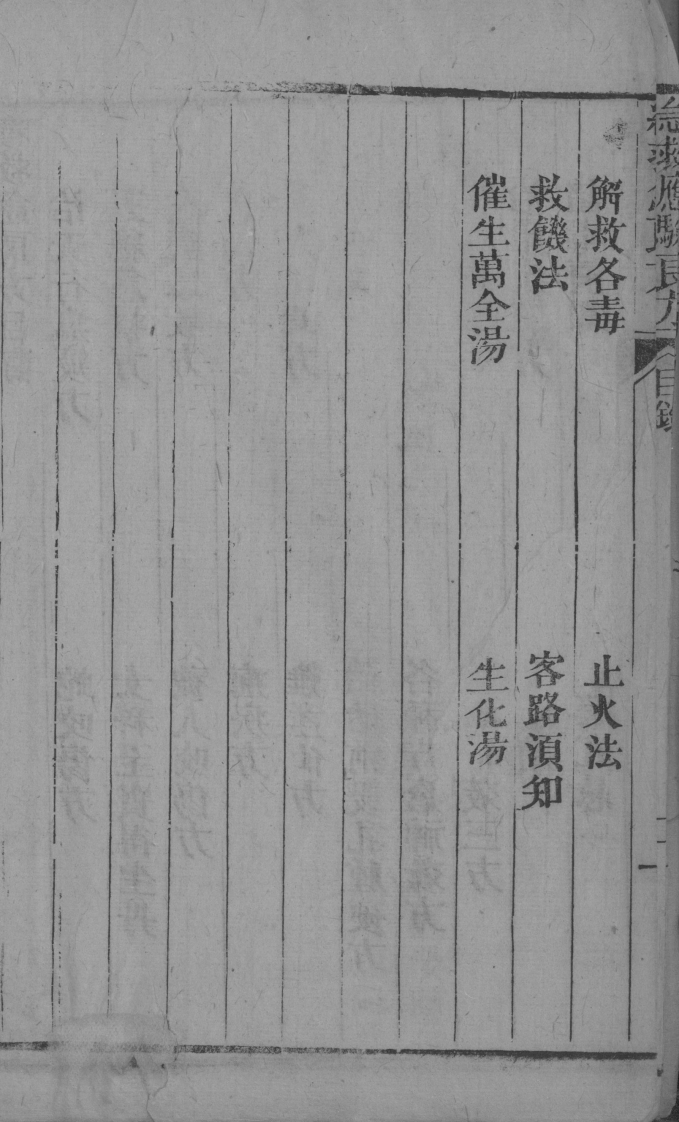 急救應驗良方 目錄
解救各毒 止火法
救饑法 客路須知
催生萬全湯 生化湯